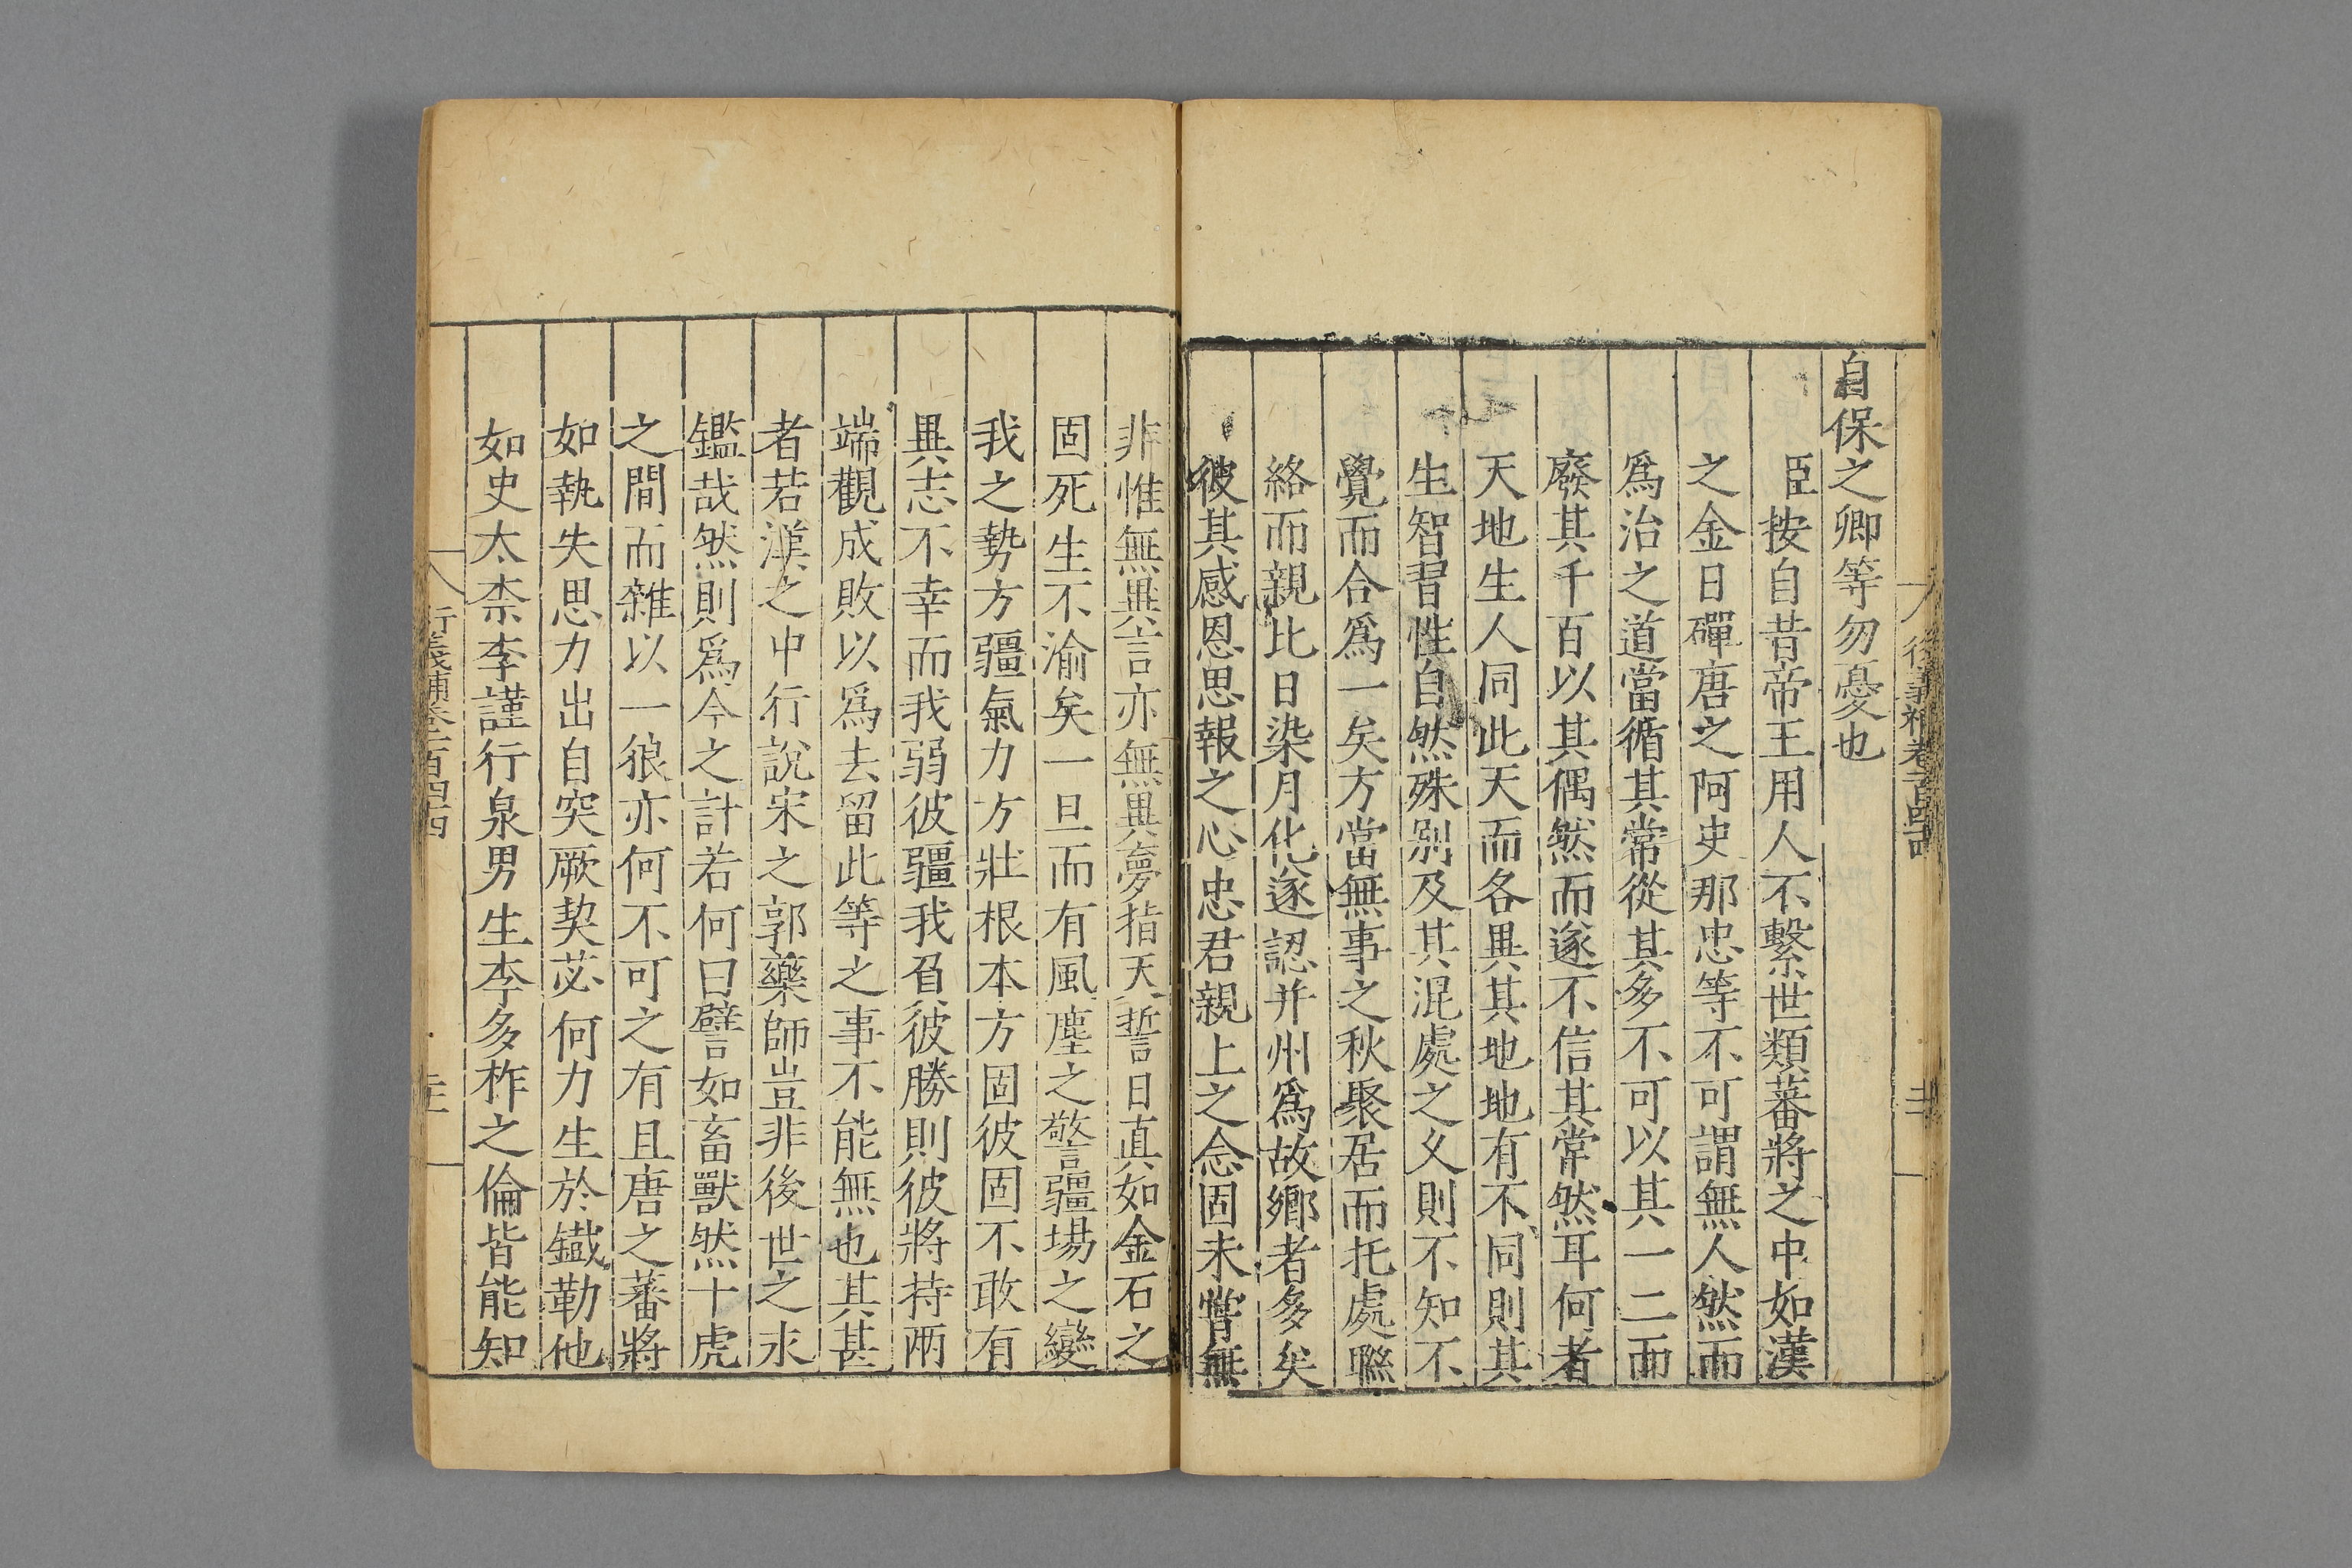 自保之卿等勿憂也
臣按自昔帝王用人不繫世類蕃將之中如漢
之金日磾唐之阿史那忠等不可謂無人然而
爲治之道當循其常從其多不可以其一二而
廢其千百以其偶然而遂不信其常然耳何者
天地生人同此天而各異其地地有不同則其
生智習性自然殊别及其混處之乆則不知不
覺而合爲一矣方當無事之秋聚居而托處聮
絡而親比日染月化遂認并州爲故鄉者多矣
彼其感恩思報之心忠君親上之念固未甞無
非惟無異言亦無異夢指天誓日真如金石之
固死生不渝矣一旦而有風塵之警疆場之變
我之勢方疆氣力方壯根本方固彼固不敢有
異志不幸而我弱彼疆我負彼勝則彼將持兩
端觀成敗以爲去留此等之事不能無也其甚
者若漢之中行說宋之郭藥師豈非後世之永
鑑哉然則爲今之計若何曰譬如畜獸然十虎
之間而雜以一狼亦何不可之有且唐之蕃將
如執失思力出自突厥契苾何力生於鐵勒他
如史大柰李謹行泉男生李多祚之倫皆能知
衍義補卷一百四四